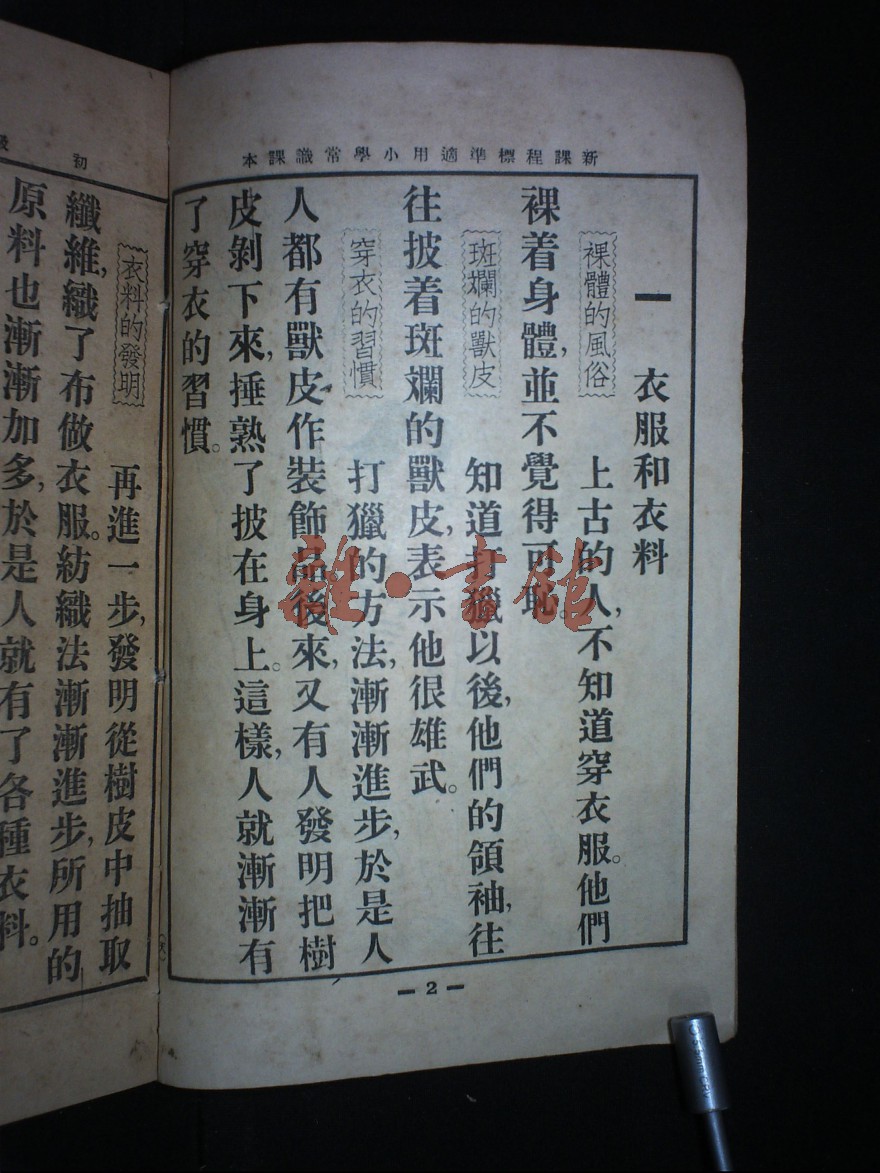 新課程標準適用小學常識課本
一 衣服和衣料
裸體的風俗 上古的人,不知道穿衣服。他們
裸着身體,並不覺得可恥。
斑斕的獸皮 知道打獵以後,他們的領袖,往
往披着斑斕的獸皮,表示他很雄武。
穿衣的習慣 打獵的方法,漸漸進步,於是人
人都有獸皮作裝飾品。後來,又有人發明把樹
皮剝下來,捶熟了披在身上。這樣,人就漸漸有
了穿衣的習慣。
— 2 —
初
衣料的發明 再進一步,發明從樹皮中抽取
纖維,織了布做衣服。紡織法漸漸進步,所用的
原料也漸漸加多,於是人就有了各種衣料。
雜·書館